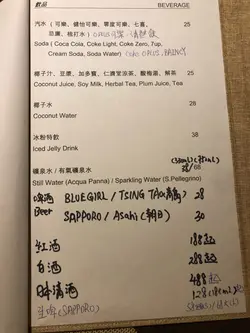 飲品 BEVERAGE
汽水 ( 可樂、健怡可樂、零度可樂、七喜、 25
忌廉、梳打水 )
Soda ( Coca Cola, Coke Light, Coke Zero, 7up,
Cream Soda, Soda Water)
椰子汁、豆漿、加多寶、仁濟堂涼茶、酸梅湯、鮮茶 25
Coconut Juice, Soy Milk, Herbal Tea, Plum Juice, Tea
椰子水 28
Coconut Water
冰粉特飲 38
Iced Jelly Drink
礦泉水 / 有氣礦泉水 /68
Still Water (Acqua Panna) / Sparkling Water (S.Pellegrino)
啤酒 BLUE GIRL / TSING TAO(青島) 28
Beer SAPPORO / Asahi (朝日) 30
紅酒 188起
白酒 288起
日本清酒 488起
生啤(SAPPORO) 128